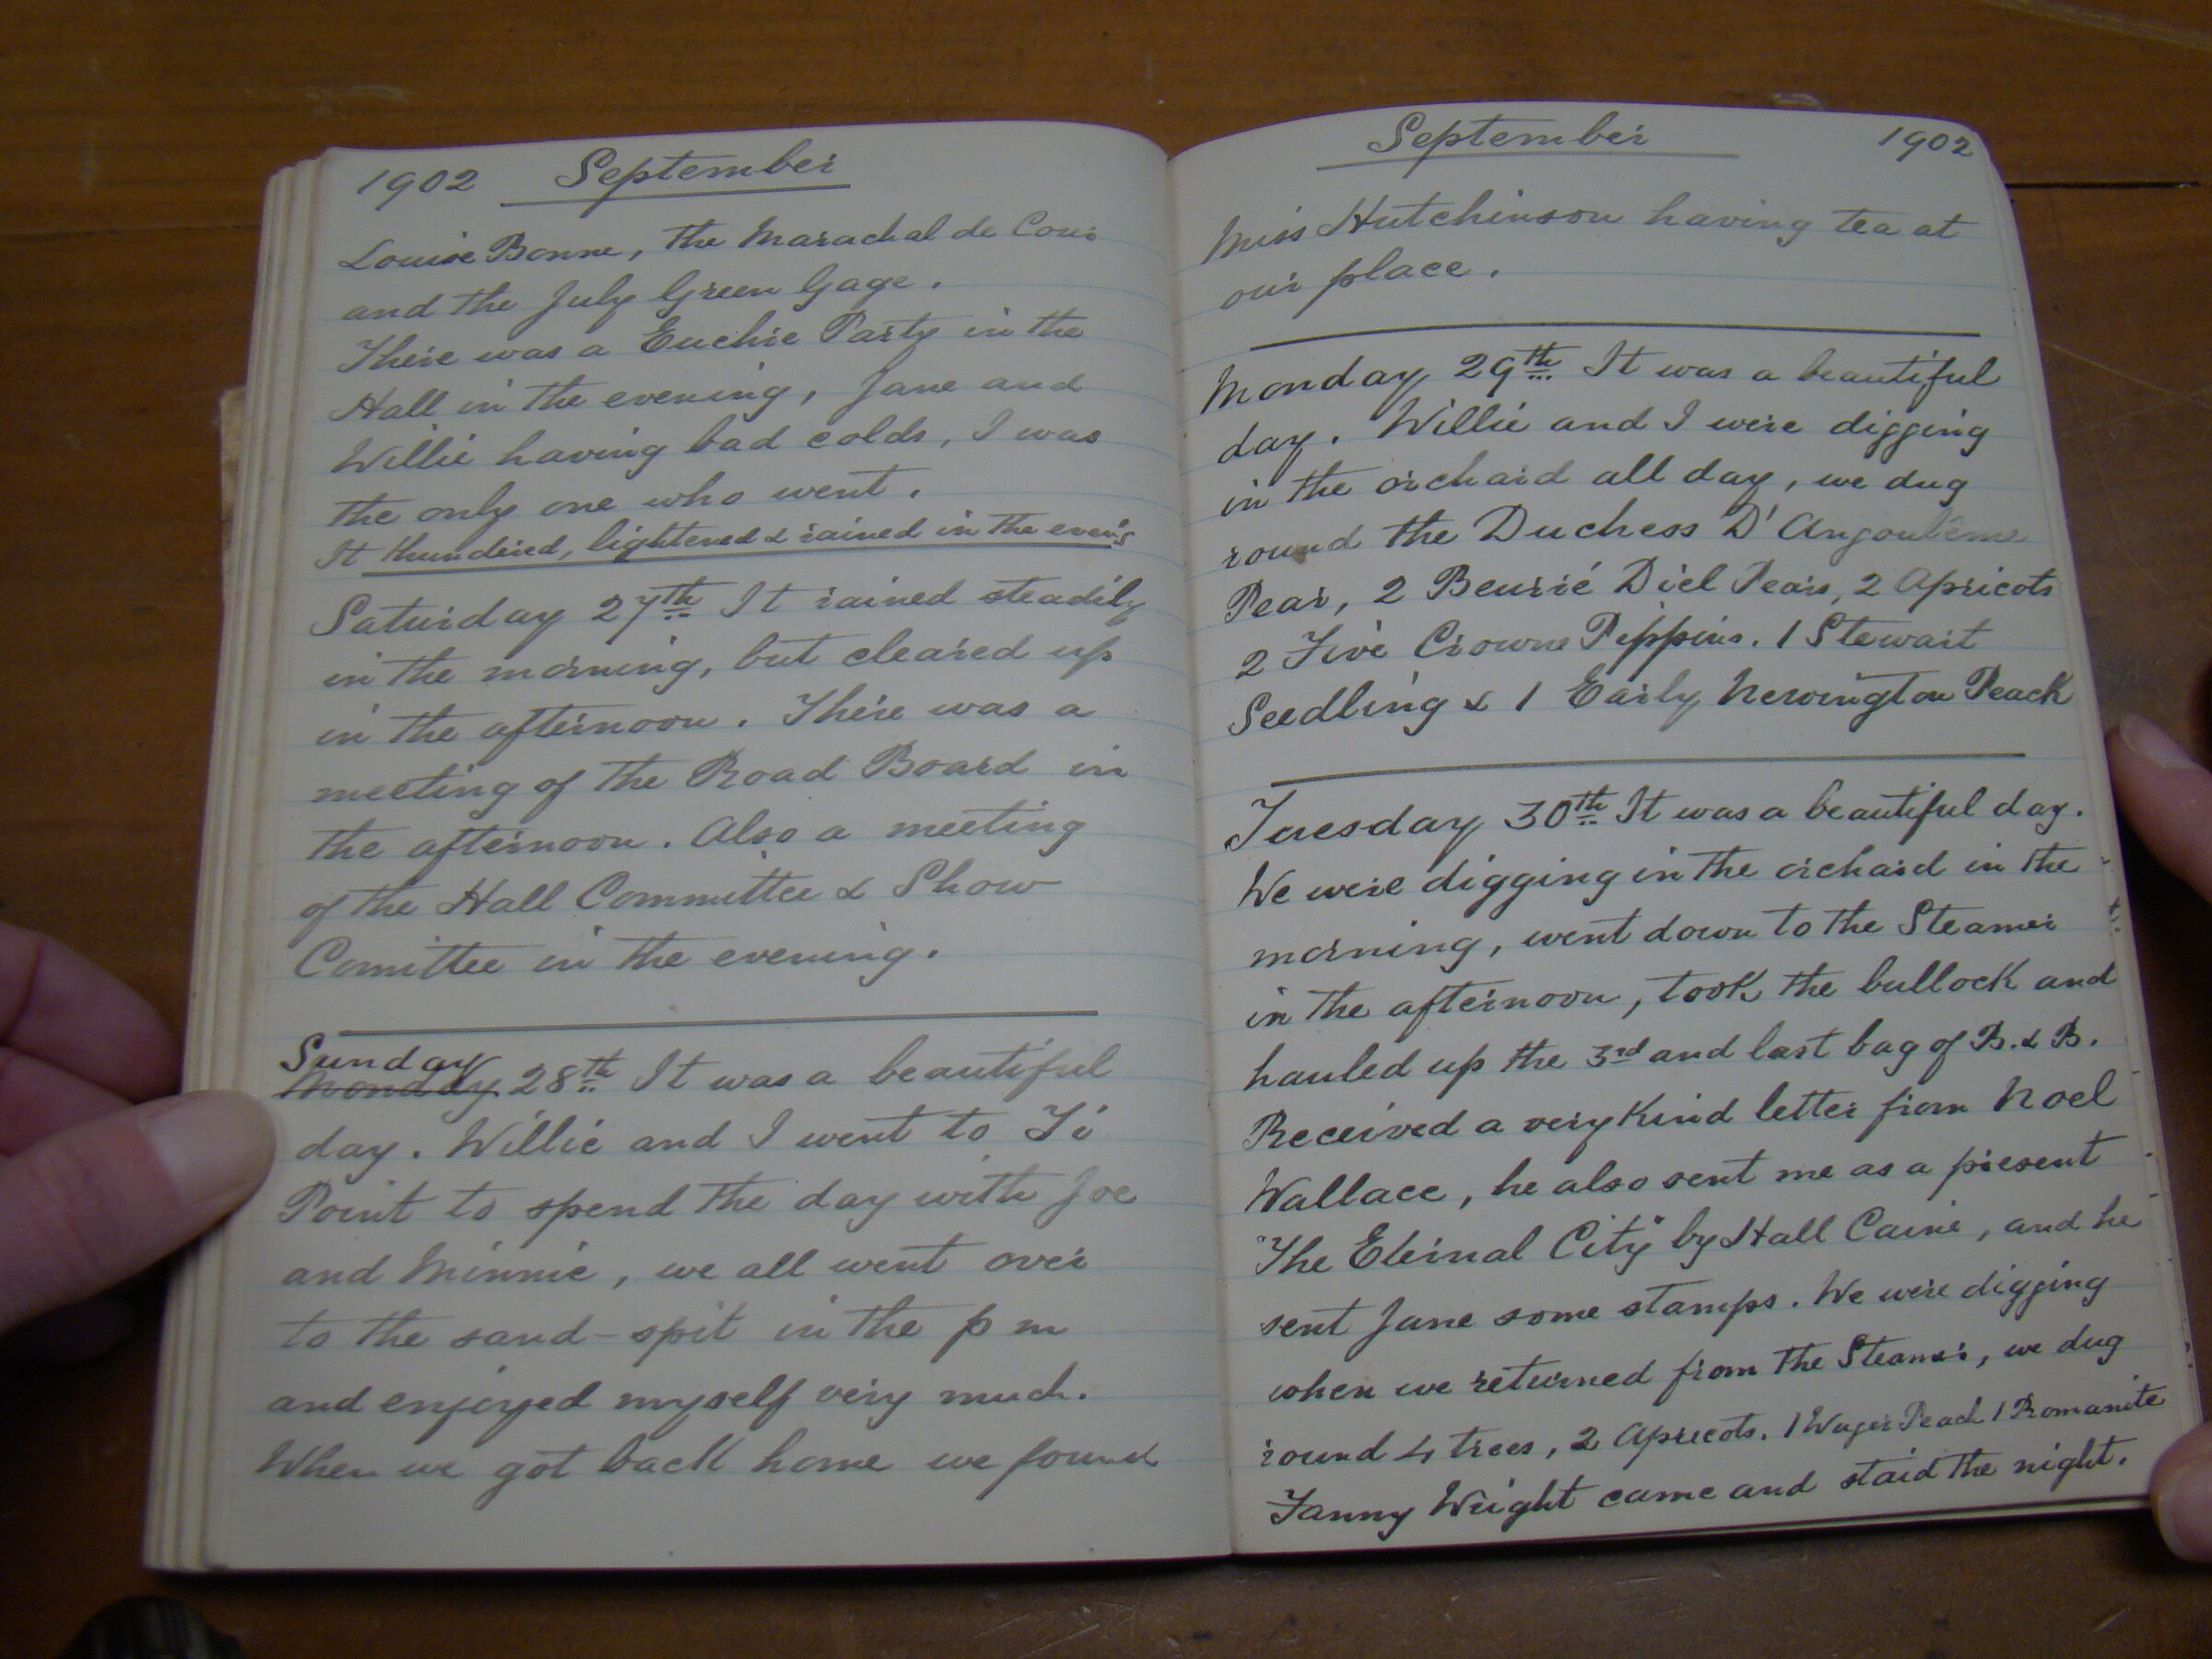 1902 September
Louise Bonne, the Marachal de Cour
and the July Green Gage.
There was a Euchre Party in the
Hall in the evening, Jane and
Willie having bad colds, I was
the only one who went.
It thundered, lightened & rained in the even'g
Saturday 27th It rained steadily
in the morning, but cleared up
in the afternoon. There was a
meeting of the Road Board in
the afternoon. Also a meeting
of the Hall Committee & Show
Comittee in the evening.
Sunday
Monday 28th It was a beautiful
day. Willie and I went to Ti
Point to spend the day with Joe
and Minnie, we all went over
to the sand-spit in the p m
and enjoyed myself very much.
When we got back home we found
September 1902
Miss Hutchinson having tea at
our place.
Monday 29th It was a beautiful
day. Willie and I were digging
in the orchard all day, we dug
round the Duchess D'Angoulême
Pear, 2 Beurré Diel Pears, 2 Apricots
2 Five Crowne Peppins. 1 Stewart
Seedling & 1 Early Newington Peach
Tuesday 30th It was a beautiful day.
We were digging in the orchard in the
morning, went down to the Steamer
in the afternoon, took the bullock and
hauled up the 3rd and last bag of B. & B.
Received a very kind letter from Noel
Wallace, he also sent me as a present
"The Eternal City" by Hall Caine, and he
sent Jane some stamps. We were digging
when we returned from the Steamer, we dug
round 4 trees, 2 Apricots. 1 Wager Peach 1 Romanite
Fanny Wright came and staid the night.